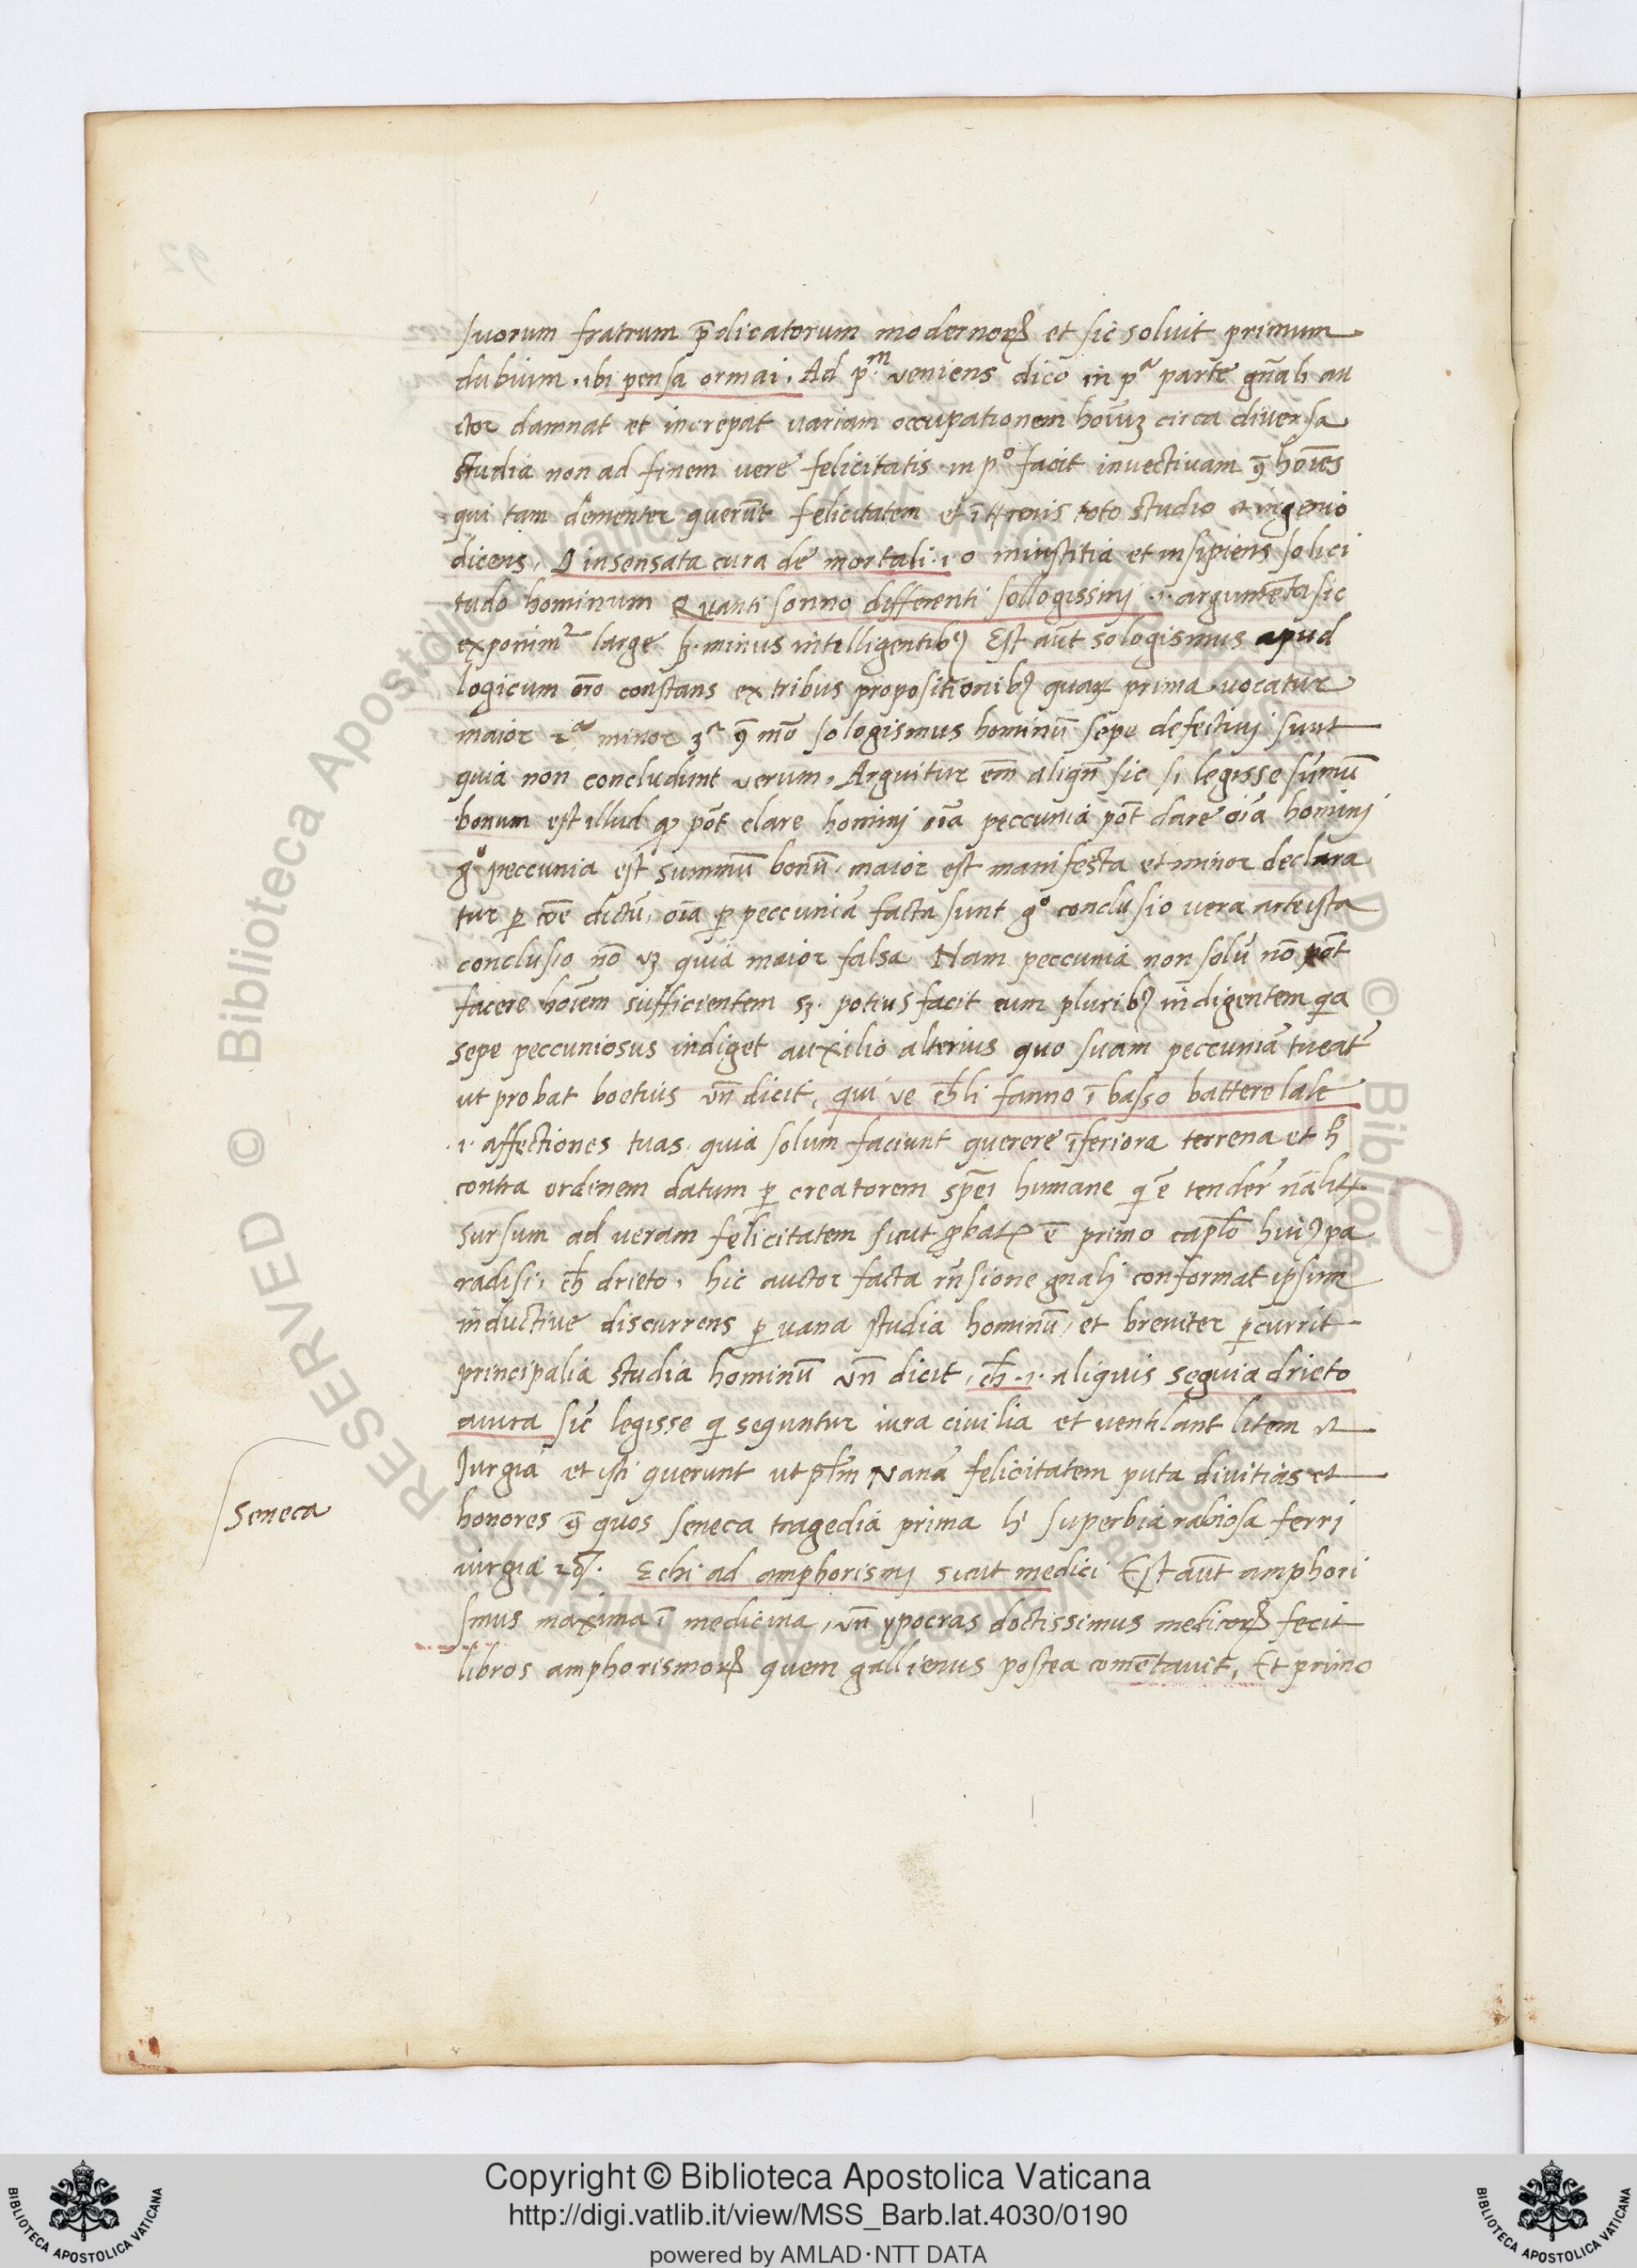 suorum fratrum p̄dicatorum modernoꝝ et sic soluit primum
dubium · ibi pensa ormai · Ad p.ᵐ veniens dico in pᵃ parte gn̄ali au
ctor damnat et increpat uariam occupationem hoīuꝫ circa diuersa
studia non ad finem uere felicitatis · in pº facit inuectiuam ꝯ̄ hoīes
qui tam dementer querūt felicitatem et ī toto studio et ingenio
dicens, O insensata cura de mortali · i · o iniustitia et insipiens solici
tudo hominum Quanti sonno differenti sollogissmj · i · argumēta sic
exponimᵘʳ large minus intelligentibꝰ Est aūt sologismus apud
logicum ōro constans ex tribus propositionibꝰ quaꝝ prima uocatur
maior 2ᵃ minor 3ᵃ ꝯ̄ mō sologismus hominū sepe defectiuj sunt
quia non concludunt verum, Arguitur em̄ aliqn̄ sic si legisse sūmū
bonum est illud qꝫ pōt dare hominj oīa peccunia pōt dare oīa hominj
gº peccunia est summū bonū · maior est manifesta et minor declara
tur ꝑ cōe dictū, oīa ꝑ peccuniā facta sunt gº conclusio uera arte ista
conclusio nō uꝫ quia maior falsa Nam peccunia non solū nō pōt
facere hoīem sufficientem sꝫ · potius facit eum pluribꝰ indigentem qa
sepe peccuniosus indiget auxilio alterius quo suam peccuniā tueat̄
ut probat boetius vn̄ dicit, qui ue ch̄ li fanno ī basso battere lale
· i · affectiones tuas · quia solum faciunt querere īferiora terrena et h̄
contra ordinem datum ꝑ creatorem spēi humane q̄ ē tender̄ nāliter
sursum ad ueram felicitatem sicut ꝓbatur ē primo cap̄lo huiꝰ pa
radisi, ch̄ drieto, hic auctor facta rn̄sione gnalj conformat ipsum
inductiue discurrens ꝑ uana studia hominū, et breuiter ꝑcurrit
principalia studia hominū vn̄ dicit, ch̄ · i · aliquis seguia drieto
aiura sic legisse q̄ seguntur iura ciuilia et uentilant litem et
Jurgia et isti querunt ut p̄lm̄ Nanā felicitatem puta diuitias et
honores ꝯ̄ quos seneca tragedia prima h̄ superbia rabiosa ferri
iurgia Echi ad amphorismj sicut medici Est aūt amphori
smus maxima ī medicina, vn̄ ypocras doctissimus medicoꝝ fecit
libros amphorismoꝝ quem gallienus postea comētauit, Et primo
Seneca
Copyright © Biblioteca Apostolica Vaticana
http://digi.vatlib.it/view/MSS_Barb.lat.4030/0190
powered by AMLAD·NTT DATA
BIBLIOTECA APOSTOLICA VATICANA
BIBLIOTECA APOSTOLICA VATICANA